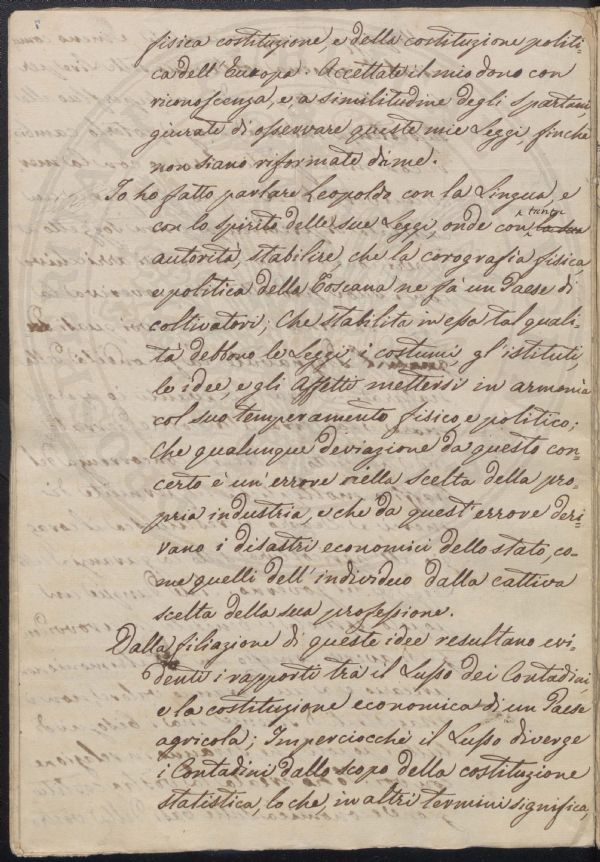 fisica costituzione, e della costituzione politi=
ca dell'Europa. Accettate il mio dono con
riconoscenza, e, a similitudine degli spartani,
giurate di osservare queste mie Leggi, finchè
non siano riformate da me.
Io ho fatto parlare Leopoldo con la Lingua, e
con lo spirito delle sue Leggi, onde con tanta la sua
autorità stabilire, che la corografia fisica,
e politica della Toscana ne fà un Paese di
coltivatori; Che stabilita in essa tal quali=
tà debbono le Leggi, i costumi, gl'istituti,
le idee, e gli Affetti mettersi in armonia
col suo temperamento fisico, e politico;
Che qualunque deviazione da questo con=
certo è un'errore nella scelta della pro=
pria industria, e che da quest'errore deri=
vano i disastri economici dello stato, co=
me quelli dell'individuo dalla cattiva
scelta della sua professione.
Dalla filiazione di queste idee resultano evi=
denti i rapporti trà il Lusso dei Contadini,
e la costituzione economica di un Paese
agricola; Imperciocchè il Lusso diverge
i Contadini dallo scopo della costituzione
statistica, lo che, in altri termini significa,